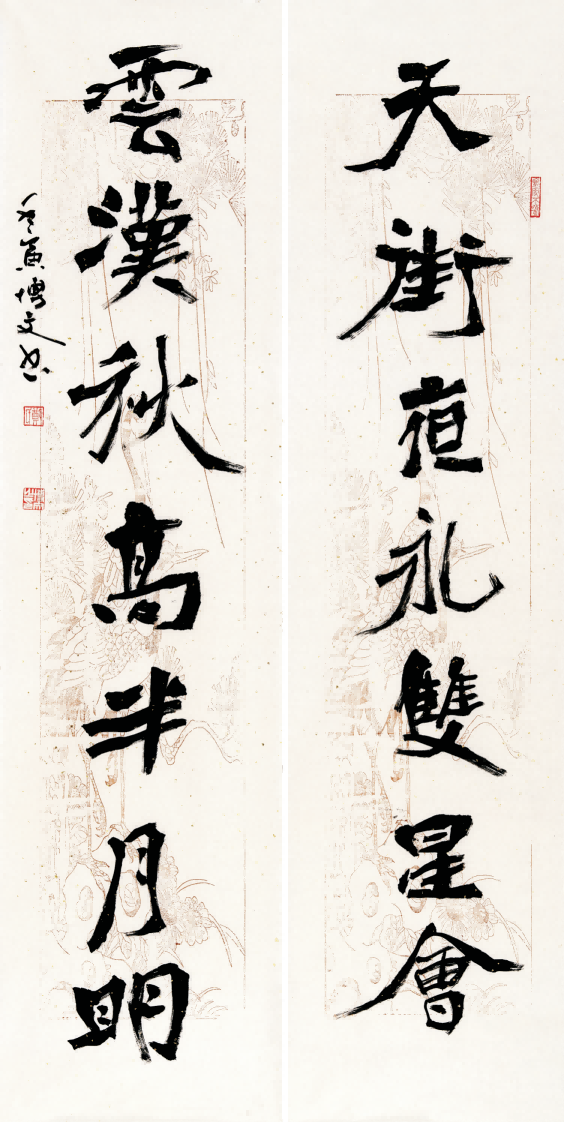 天街夜永雙星會
雲漢秋高半月明
博文書